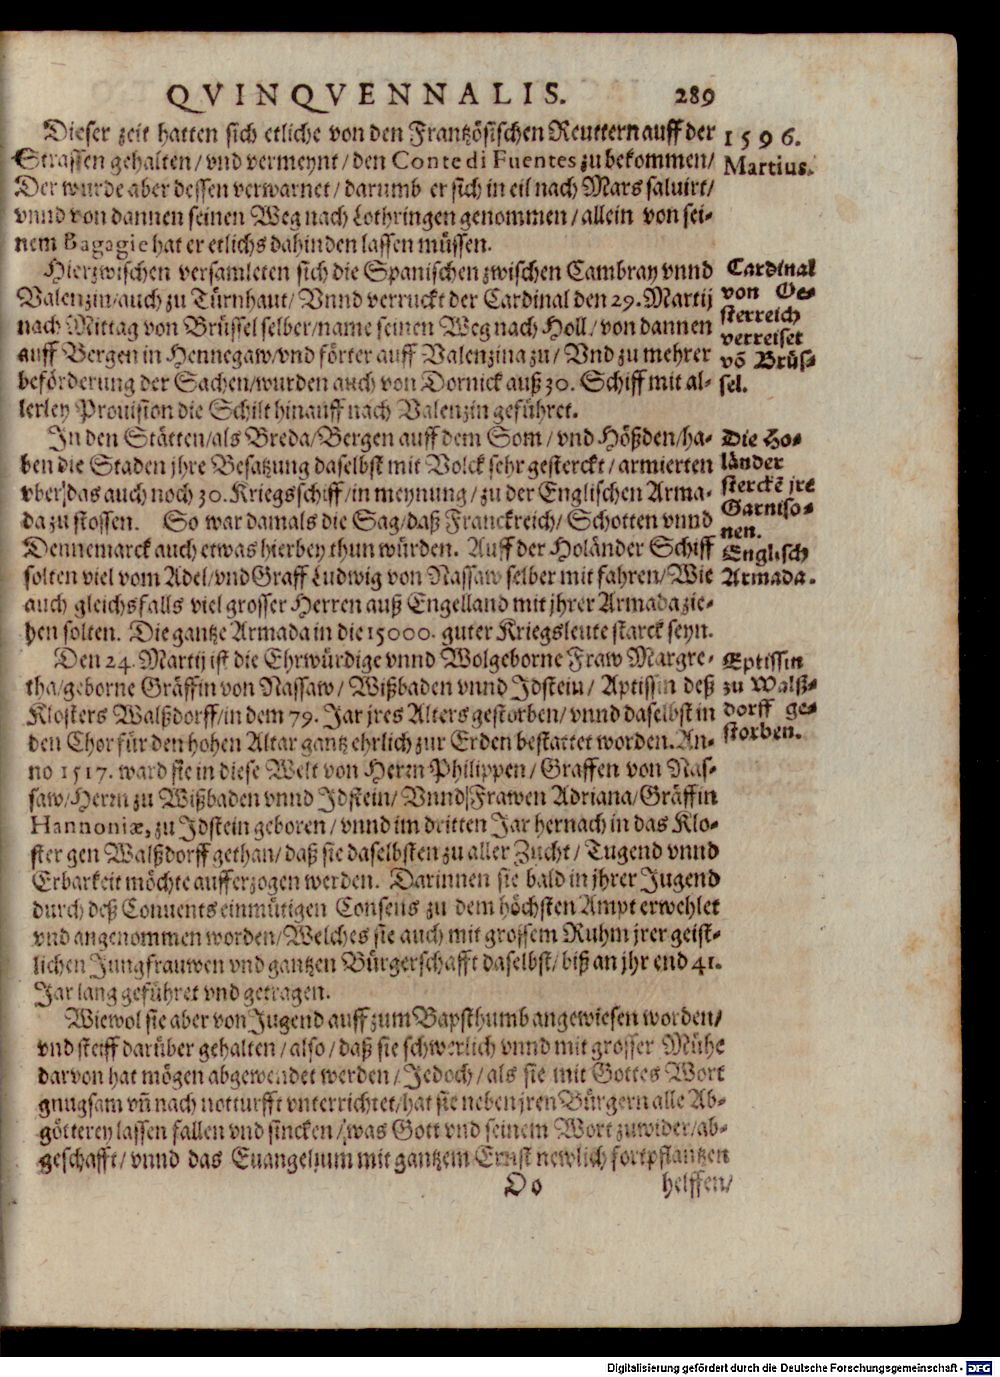 QVINQVENNALIS. 289
Dieser zeit hatten sich etliche von den Frantzösischen Reuttern auff der
Strassen gehalten/ vnd vermeynt/ den Conte di Fuentes zu bekommen/
Der wurde aber dessen verwarnet/ darumb er sich in eil nach Mars saluirt/
vnnd von dannen seinen Weg nach Lothringen genommen/ allein von sei-
nem Bagagie hat er etlichs dahinden lassen müssen.
1596.
Martius.
Hierzwischen versamleten sich die Spanischen zwischen Cambray vnnd
Valenzin/ auch zu Türnhaut/ Vnnd verruckt der Cardinal den 29. Martij
nach Mittag von Brüssel selber/ name seinen Weg nach Holl/ von dannen
auff Bergen in Hennegaw/ vnd förter auff Valenzina zu/ Vnd zu mehrer
beförderung der Sachen/ wurden auch von Dornick auß 30. Schiff mit al-
lerley Prouision die Schilt hinauff nach Valenzin geführet.
Cardinal
von Oe-
sterreich
verreiset
võ Brüs-
sel.
In den Stätten/ als Breda/ Bergen auff dem Som/ vnd Hößden/ ha-
ben die Staden jhre Besatzung daselbst mit Volck sehr gesterckt/ armierten
vber das auch noch 30. Kriegsschiff/ in meynung/ zu der Englischen Arma-
da zu stossen. So war damals die Sag/ daß Franckreich/ Schotten vnnd
Dennemarck auch etwas hierbey thun würden. Auff der Holänder Schiff
solten viel vom Adel/ vnd Graff Ludwig von Nassaw selber mit fahren/ Wie
auch gleichsfalls viel grosser Herren auß Engelland mit jhrer Armada zie-
hen solten. Die gantze Armada in die 15000. guter Kriegsleute starck seyn.
Die Ho-
länder
sterckẽ jre
Garniso-
nen.
Englisch
Armada.
Den 24. Martij ist die Ehrwürdige vnnd Wolgeborne Fraw Margre-
tha/ geborne Gräffin von Nassaw/ Wißbaden vnnd Jdstein/ Aptissin deß
Klosters Walßdorff/ in dem 79. Jar jres Alters gestorben/ vnnd daselbst in
den Chor für den hohen Altar gantz ehrlich zur Erden bestattet worden. An-
no 1517. ward sie in diese Welt von Herrn Philippen/ Graffen von Nas-
saw/ Herrn zu Wißbaden vnnd Jdstein/ Vnnd Frawen Adriana/ Gräffin
Hannoniæ, zu Jdstein geboren/ vnnd im dritten Jar hernach in das Klo-
ster gen Walßdorff gethan/ daß sie daselbsten zu aller Zucht/ Tugend vnnd
Erbarkeit möchte aufferzogen werden. Darinnen sie bald in jhrer Jugend
durch deß Conuents einmütigen Consens zu dem höchsten Ampt erwehlet
vnd angenommen worden/ Welches sie auch mit grossem Ruhm jrer geist-
lichen Jungfrauwen vnd gantzen Bürgerschafft daselbst/ biß an jhr end 41.
Jar lang geführet vnd getragen.
Eptissin
zu Walß-
dorff ge-
storben.
Wiewol sie aber von Jugend auff zum Bapsthumb angewiesen worden/
vnd steiff darüber gehalten/ also/ daß sie schwerlich vnnd mit grosser Mühe
darvon hat mögen abgewendet werden/ Jedoch/ als sie mit Gottes Wort
gnugsam vñ nach notturfft vnterrichtet/ hat sie neben jren Bürgern alle Ab-
götterey lassen fallen vnd sincken/ was Gott vnd seinem Wort zuwider/ ab-
geschafft/ vnnd das Euangelium mit gantzem Ernst newlich fortpflantzen
Oo helffen/
Digitalisierung gefördert durch die Deutsche Forschungsgemeinschaft - DFG